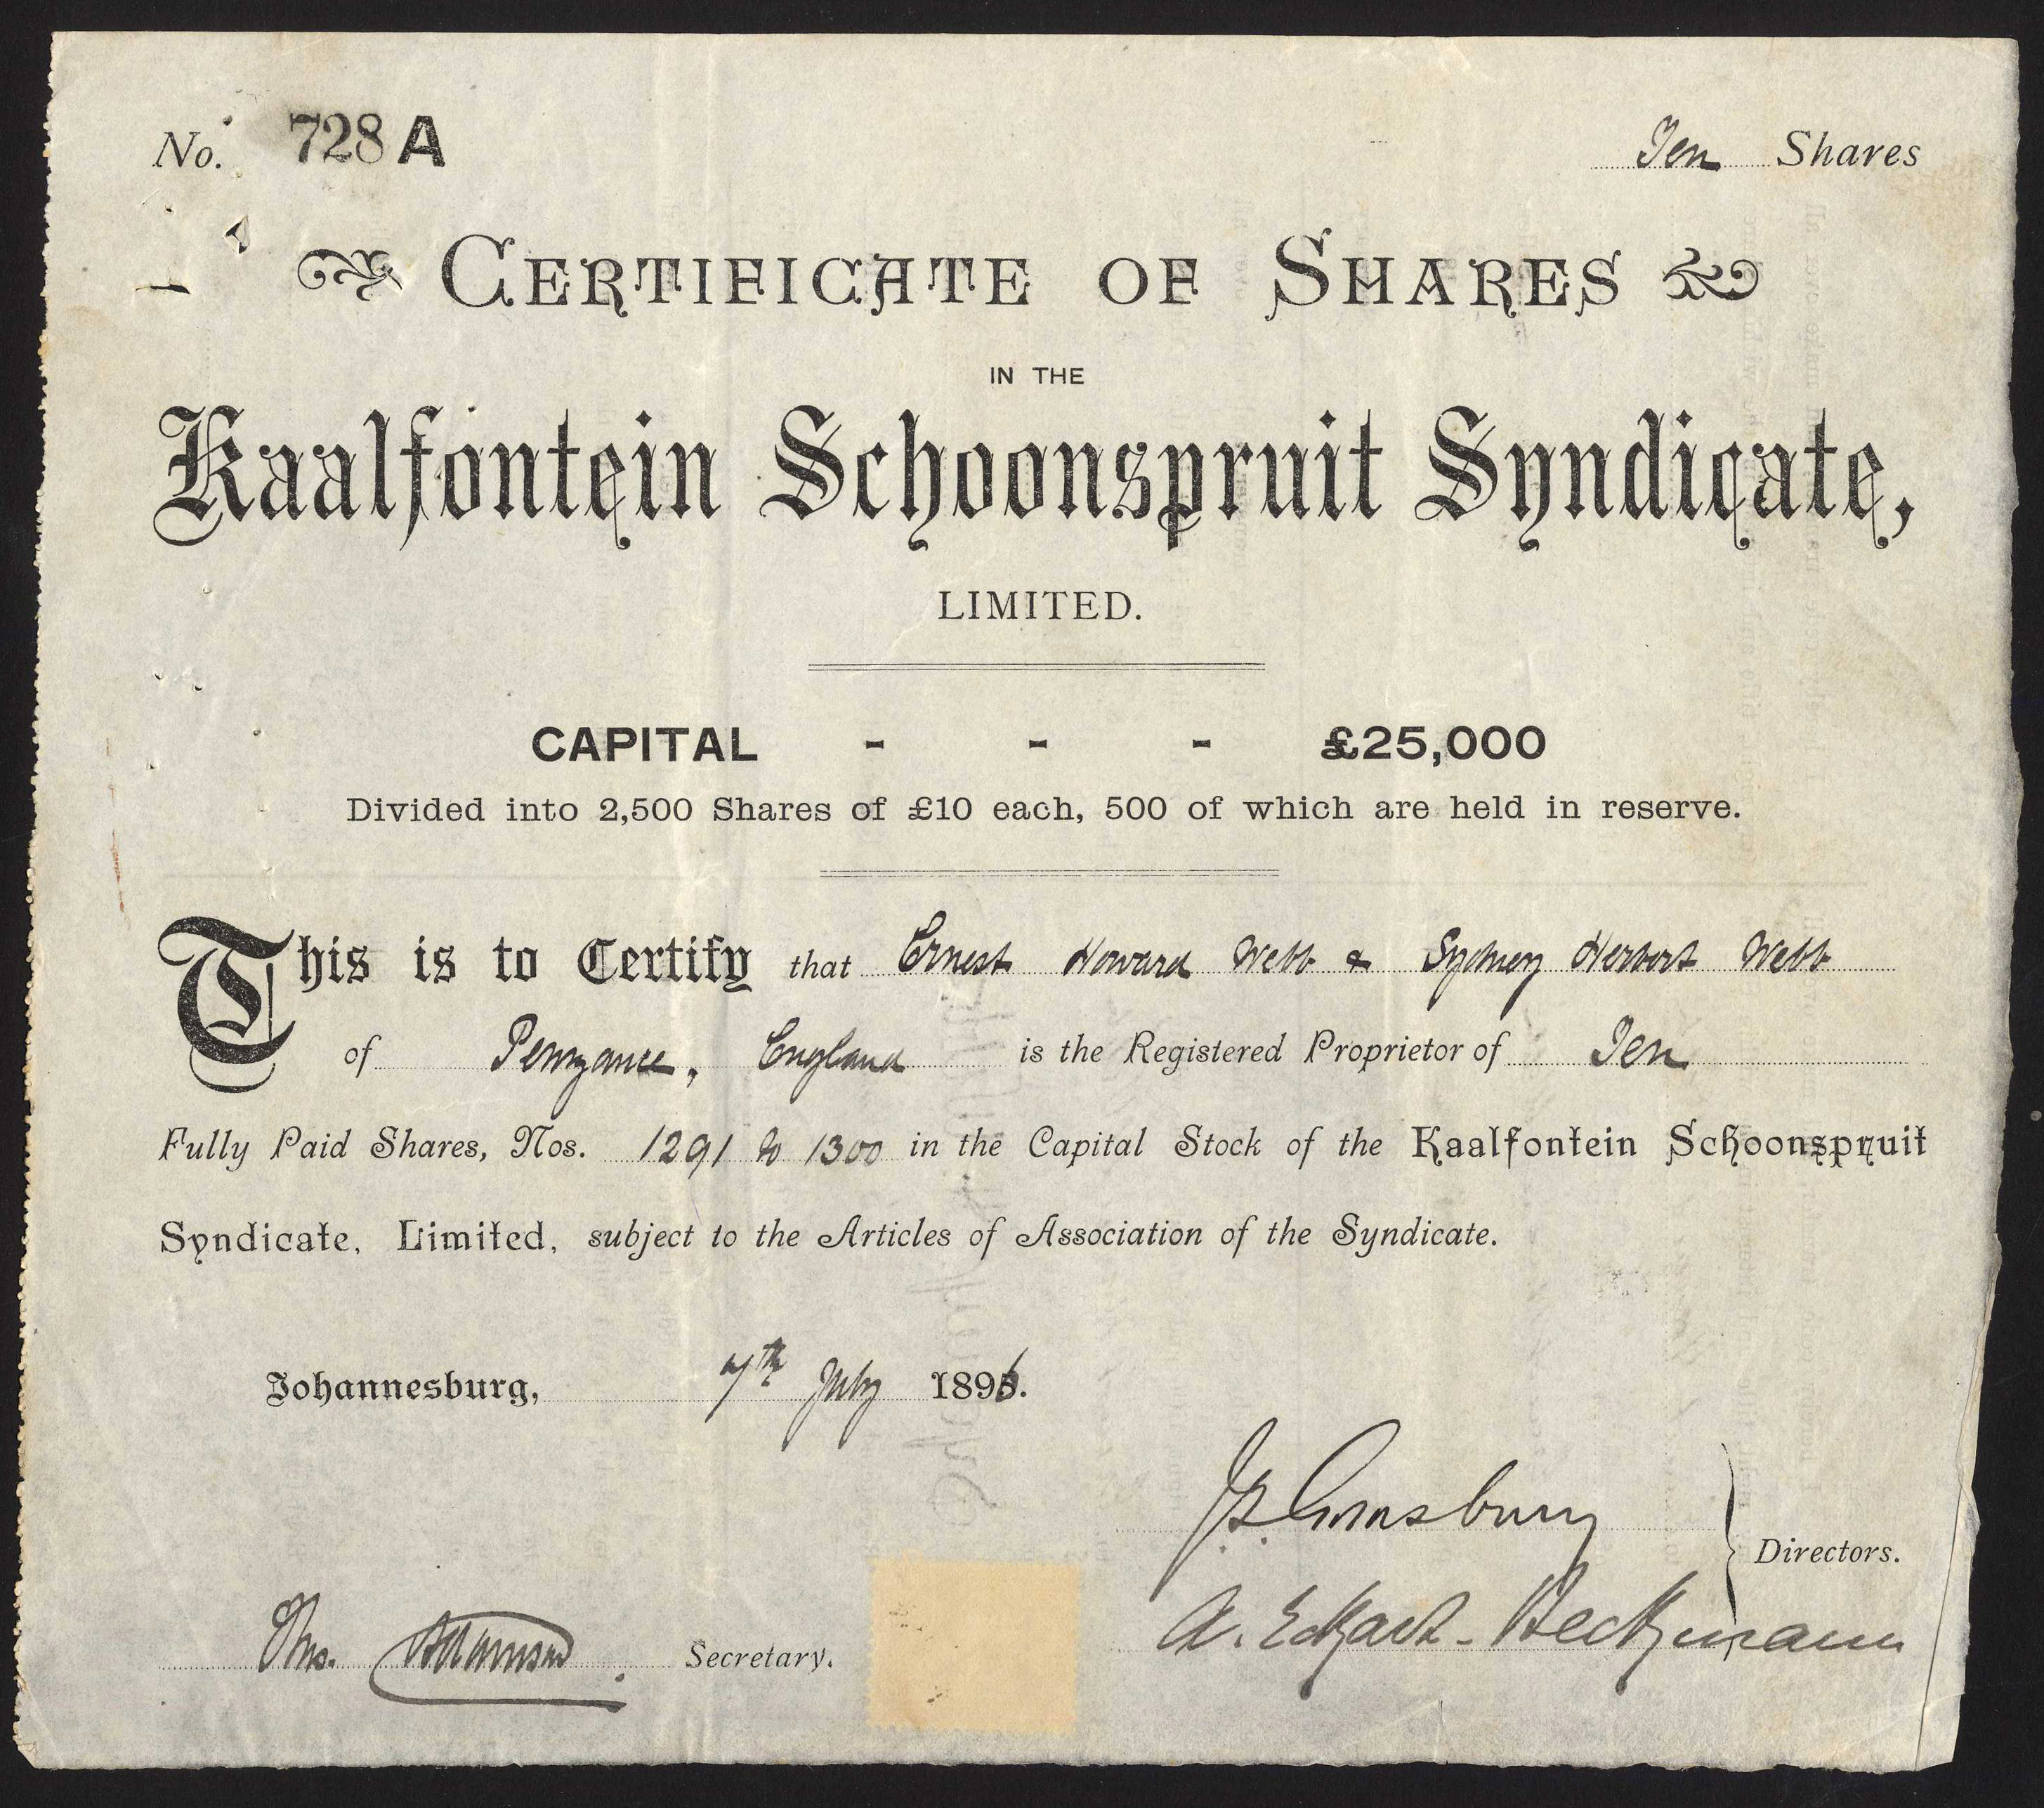 No. 728 A
Ten Shares
CERTIFICATE OF SHARES
IN THE
Kaalfontein Schoonspruit Syndicate,
LIMITED.
CAPITAL - - - £25,000
Divided into 2,500 Shares of £10 each, 500 of which are held in reserve.
This is to Certify that Ernest Howard Webb & Sydney Herbert Webb
of Penzance, England is the Registered Proprietor of Ten
Fully Paid Shares, Nos. 1291 to 1300 in the Capital Stock of the Kaalfontein Schoonspruit
Syndicate, Limited, subject to the Articles of Association of the Syndicate.
Johannesburg, 7th July 1896.
Directors.
A. Eckart-Beckmann
Secretary.